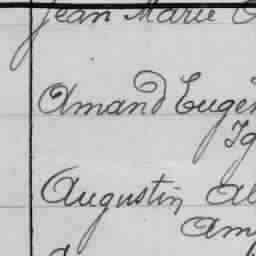 Jean Marie
Amand Eugèn
Ig
Augustin Al
Am